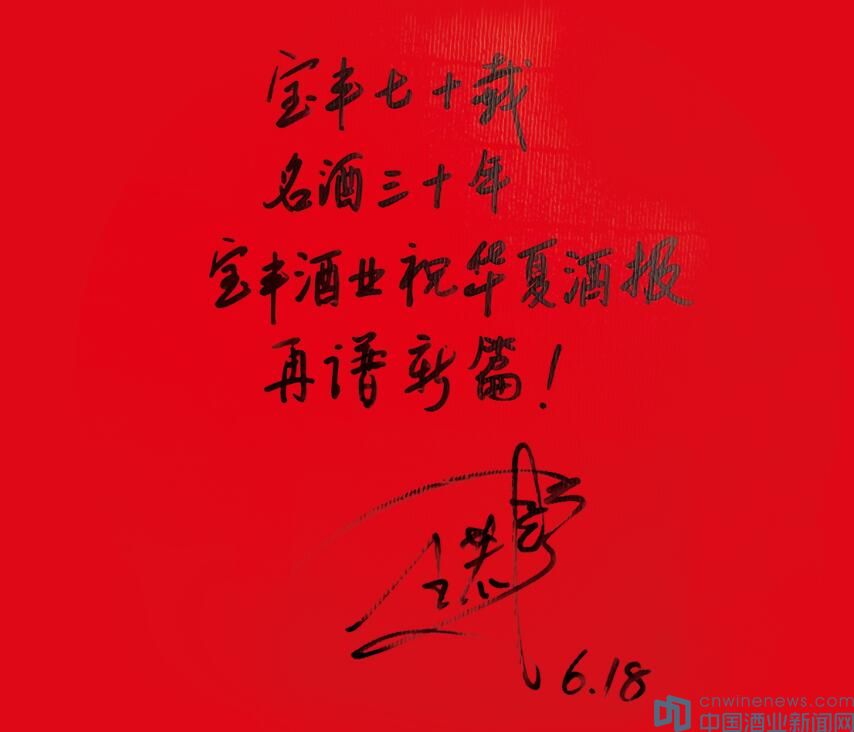 宝丰七十载
名酒三十年
宝丰酒业祝华夏酒报
再谱新篇！
6.18
cnwinenews.com
中国酒业新闻网